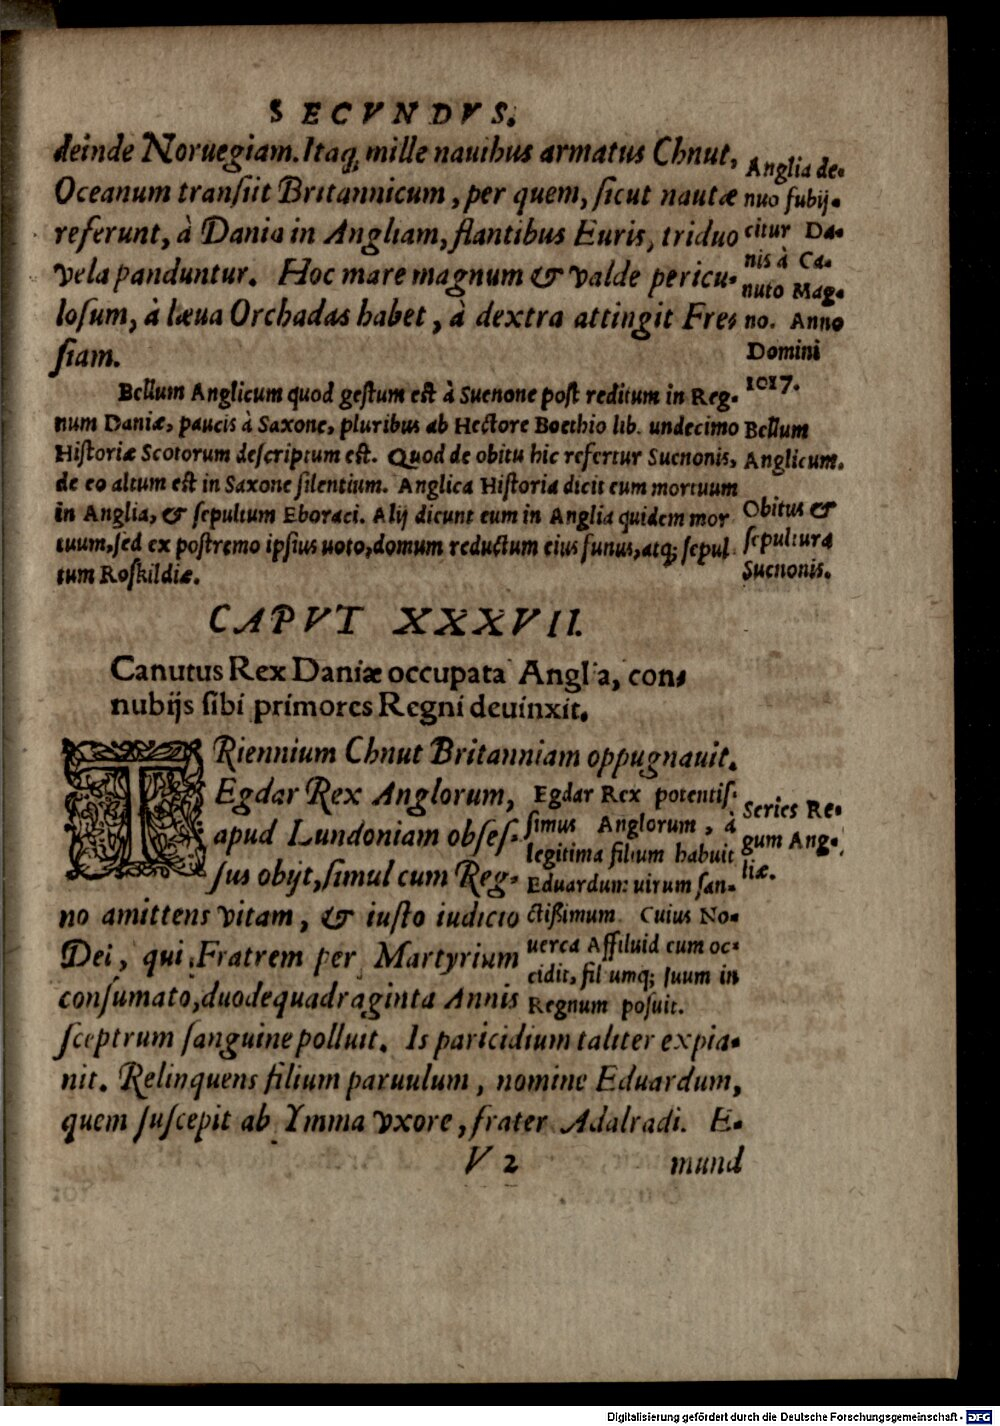 SECVNDVS.
deinde Noruegiam. Itaq; mille nauibus armatus Chnut,
Oceanum transiit Britannicum, per quem, sicut nautæ
referunt, à Dania in Angliam, flantibus Euris, triduo
vela panduntur. Hoc mare magnum & valde pericu-
losum, à læua Orchadas habet, à dextra attingit Fres
siam.
Anglia de-
nuo subij-
citur Da-
nis à Ca-
nuto Mag-
no. Anno
Domini
1017.
Bellum Anglicum quod gestum est à Suenone post reditum in Reg-
num Daniæ, paucis à Saxone, pluribus ab Hectore Boethio lib. undecimo
Historiæ Scotorum descriptum est. Quod de obitu hic refertur Suenonis,
de eo altum est in Saxone silentium. Anglica Historia dicit eum mortuum
in Anglia, & sepultum Eboraci. Alij dicunt eum in Anglia quidem mor
tuum, sed ex postremo ipsius uoto, domum reductum eius funus, atq; sepul
tum Roskildiæ.
Bellum
Anglicum.
Obitus &
sepultura
Suenonis.
CAPVT XXXVII.
Canutus Rex Daniæ occupata Anglia, con-
nubijs sibi primores Regni deuinxit.
TRiennium Chnut Britanniam oppugnauit.
Egdar Rex Anglorum,
apud Lundoniam obses-
sus obijt, simul cum Reg-
no amittens vitam, & iusto iudicio
Dei, qui Fratrem per Martyrium
consumato, duodequadraginta Annis
sceptrum sanguine polluit. Is paricidium taliter expia-
uit. Relinquens filium paruulum, nomine Eduardum,
quem suscepit ab Ymma vxore, frater Adalradi. E-
Egdar Rex potentis-
simus Anglorum, à
legitima filium habuit
Eduardum uirum san-
ctißimum. Cuius No-
uerca Affiluid eum oc-
cidit, filiumq; suum in
Regnum posuit.
Series Re-
gum Ang-
liæ.
V 2
mund
Digitalisierung gefördert durch die Deutsche Forschungsgemeinschaft - DFG